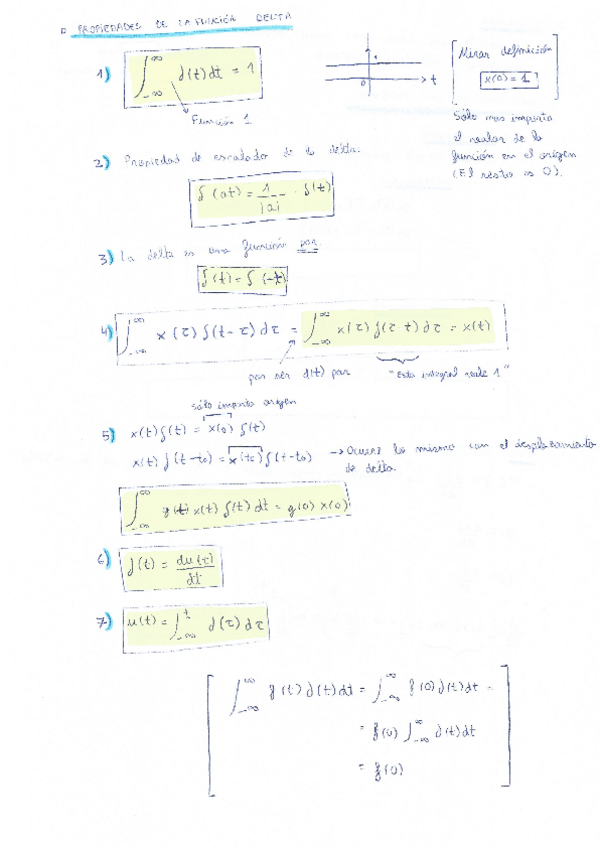 PROPIEDADES DE LA FUNCIÓN DELTA
1) ∫_{-∞}^{∞} δ(t) dt = 1
Función 1
1
0
t
Mirar definición
x(0) = 1
Sólo nos importa
el valor de la
función en el origen
(El resto es 0).
2) Propiedad de escalador de la delta.
δ(at) = 1/|a| · δ(t)
3) La delta es una función par.
δ(t) = δ(-t)
4) ∫_{-∞}^{∞} x(τ) δ(t-τ) dτ = ∫_{-∞}^{∞} x(τ) δ(τ-t) dτ = x(t)
por ser δ(t) par
"Esta integral vale 1"
sólo importa origen
5) x(t) δ(t) = x(0) δ(t)
x(t) δ(t-t0) = x(t0) δ(t-t0) → Ocurre lo mismo con el desplazamiento
de delta.
∫_{-∞}^{∞} g(t) x(t) δ(t) dt = g(0) x(0)
6) δ(t) = du(t)/dt
7) u(t) = ∫_{-∞}^{t} δ(τ) dτ
∫_{-∞}^{∞} g(t) δ(t) dt = ∫_{-∞}^{∞} g(0) δ(t) dt =
= g(0) ∫_{-∞}^{∞} δ(t) dt
= g(0)